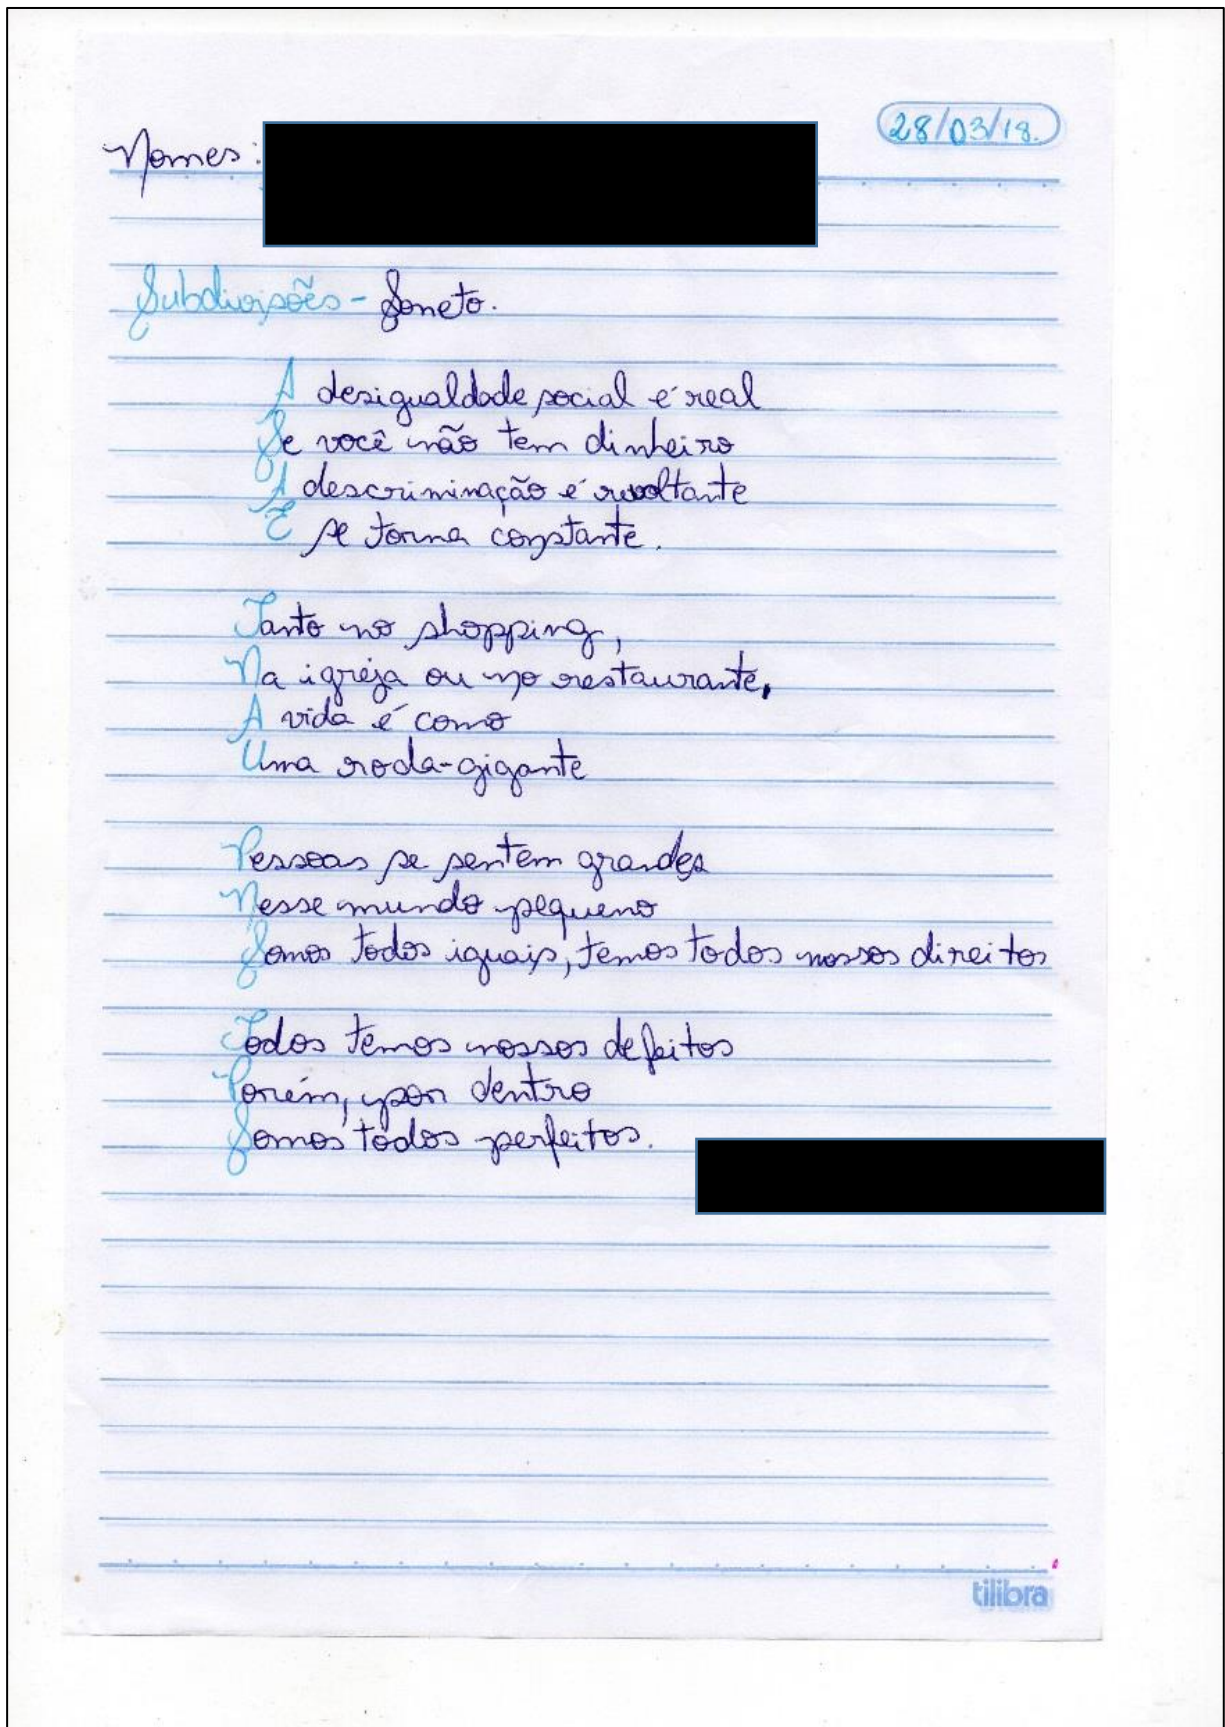 28/03/18.
Nomes:
Subdivisões - Soneto.
A desigualdade social é real
Se você não tem dinheiro
A descriminação é revoltante
E se torna constante.
Tanto no shopping,
Na igreja ou no restaurante,
A vida é como
Uma roda-gigante
Pessoas se sentem grandes
Nesse mundo pequeno
Somos todos iguais, temos todos nossos direitos
Todos temos nossos defeitos
Porém, por dentro
Somos todos perfeitos.
tilibra